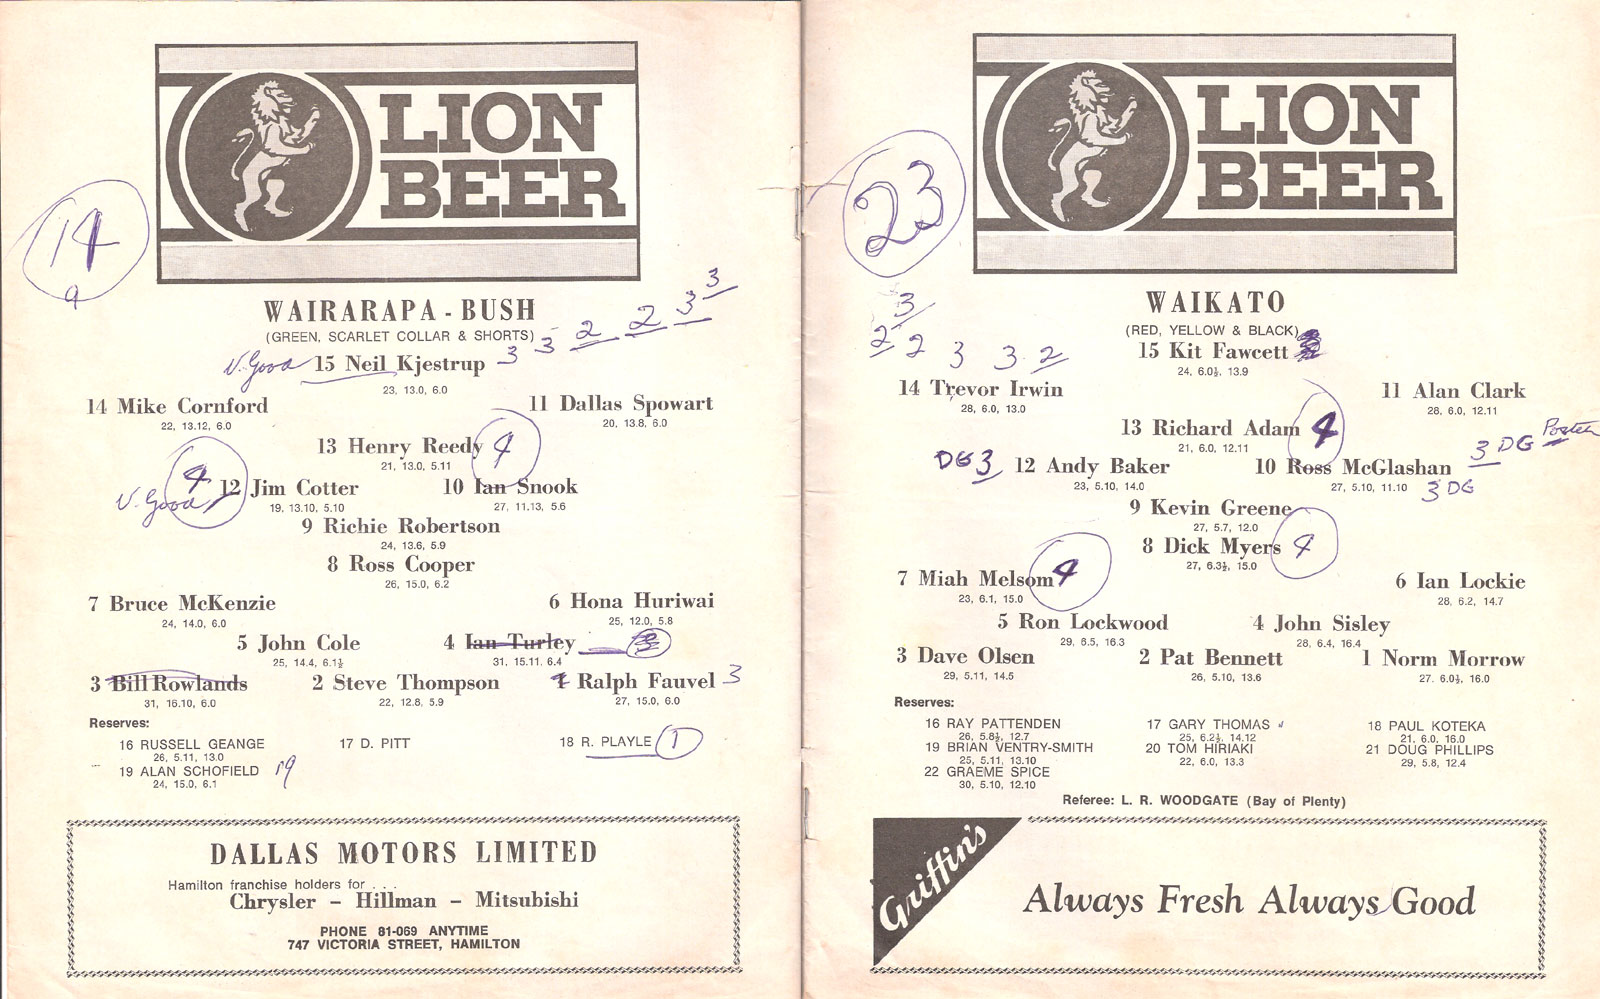 LION
BEER
14
9
WAIRARAPA - BUSH
(GREEN, SCARLET COLLAR & SHORTS)
3 3 2 2 3 3
V. Good 15 Neil Kjestrup
23, 13.0, 6.0
14 Mike Cornford 11 Dallas Spowart
22, 13.12, 6.0 20, 13.8, 6.0
13 Henry Reedy 4
21, 13.0, 5.11
V. Good 4 12 Jim Cotter 10 Ian Snook
19, 13.10, 5.10 27, 11.13, 5.6
9 Richie Robertson
24, 13.6, 5.9
8 Ross Cooper
26, 15.0, 6.2
7 Bruce McKenzie 6 Hona Huriwai
24, 14.0, 6.0 25, 12.0, 5.8
5 John Cole 4 Ian Turley
25, 14.4, 6.1½ 31, 15.11, 6.4
3 Bill Rowlands 2 Steve Thompson 1 Ralph Fauvel 3
31, 16.10, 6.0 22, 12.8, 5.9 27, 15.0, 6.0
Reserves:
16 RUSSELL GEANGE 17 D. PITT 18 R. PLAYLE 1
26, 5.11, 13.0
19 ALAN SCHOFIELD 19
24, 15.0, 6.1
DALLAS MOTORS LIMITED
Hamilton franchise holders for . . .
Chrysler – Hillman – Mitsubishi
PHONE 81-069 ANYTIME
747 VICTORIA STREET, HAMILTON
LION
BEER
23
WAIKATO
(RED, YELLOW & BLACK)
3
2 2 3 3 2
15 Kit Fawcett
24, 6.0½, 13.9
14 Trevor Irwin 11 Alan Clark
28, 6.0, 13.0 28, 6.0, 12.11
13 Richard Adam 4
21, 6.0, 12.11
DG 3 12 Andy Baker 10 Ross McGlashan 3 DG
23, 5.10, 14.0 27, 5.10, 11.10 3 DG
9 Kevin Greene
27, 5.7, 12.0
8 Dick Myers 4
27, 6.3½, 15.0
7 Miah Melsom 4 6 Ian Lockie
23, 6.1, 15.0 28, 6.2, 14.7
5 Ron Lockwood 4 John Sisley
29, 6.5, 16.3 28, 6.4, 16.4
3 Dave Olsen 2 Pat Bennett 1 Norm Morrow
29, 5.11, 14.5 26, 5.10, 13.6 27. 6.0½, 16.0
Reserves:
16 RAY PATTENDEN 17 GARY THOMAS 18 PAUL KOTEKA
26, 5.8½, 12.7 25, 6.2½, 14.12 21, 6.0, 16.0
19 BRIAN VENTRY-SMITH 20 TOM HIRIAKI 21 DOUG PHILLIPS
25, 5.11, 13.10 22, 6.0, 13.3 29, 5.8, 12.4
22 GRAEME SPICE
30, 5.10, 12.10
Referee: L. R. WOODGATE (Bay of Plenty)
Griffin's
Always Fresh Always Good